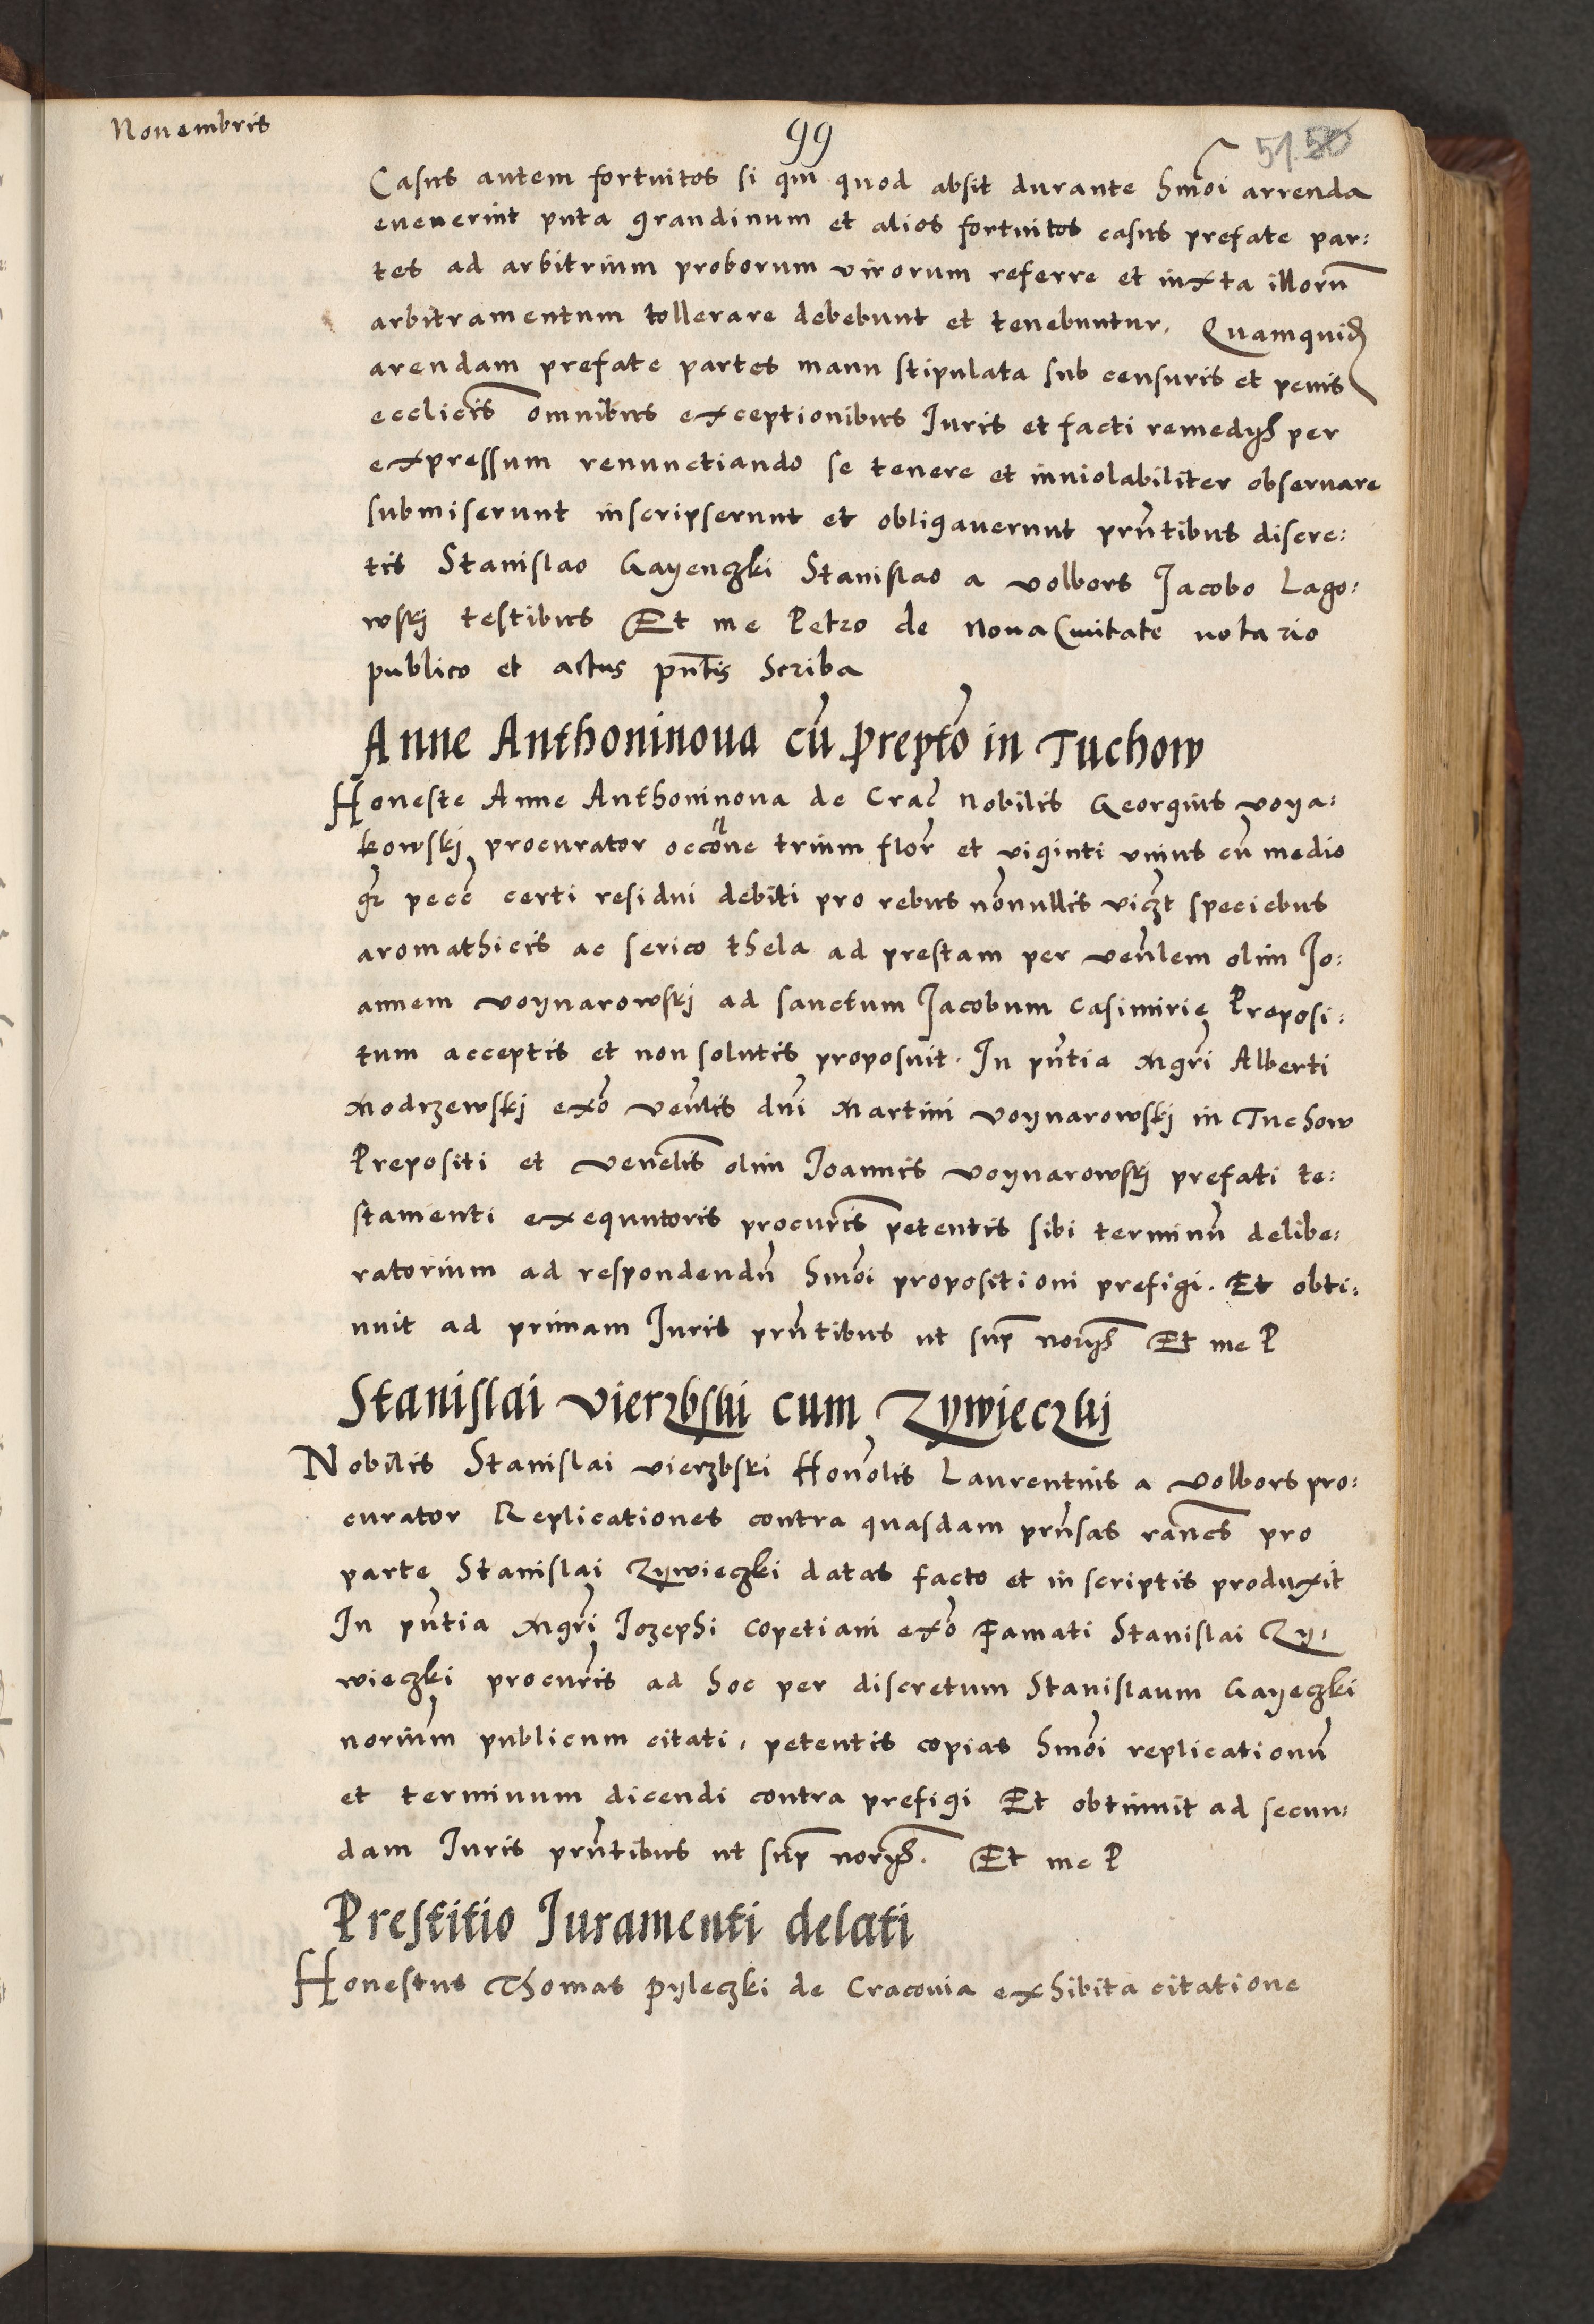 Novembris
99
51. 50
Casus autem fortuitos si qui quod absit durante hmoi arrenda
evenerint puta grandinum et alios fortuitos casus prefate par:
tes ad arbitrium proborum virorum referre et iuxta illorũ
arbitramentum tollerare debebunt et tenebuntur. Quamquid
arendam prefate partes manu stipulata sub censuris et penis
ecclicis omnibus exceptionibus Iuris et facti remedijs per
expressum renunctiando se tenere et inviolabiliter observare
submiserunt inscripserunt et obligaverunt prñtibus discre:
tis Stanislao Gayenczki Stanislao a volbors Jacobo Lago:
wskj testibus Et me Petro de Nova Civitate notario
publico et actus pñtis scriba
Anne Anthoninova cũ prepto in Tuchow
Honeste Anne Anthoninova de Crac Nobilis Georgius voya:
kowskj procurator occõne trium flor et viginti unius cũ medio
gr pecc certi residui debiti pro rebus nõnullis viczt speciebus
aromathicis ac serico thela ad prestam per venlem olim Jo:
annem voynarowskj ad sanctum Jacobum Casimirie Preposi:
tum acceptis et non solutis proposuit. In pñtia Mgri Alberti
Modrzewskj exõ venlis dñi Martini voynarowskj in Tuchow
Prepositi et venelis olim Ioannis voynarowskj prefati te:
stamenti exequutoris procuris petentis sibi terminũ delibe:
ratorium ad respondendũ hmõi propositioni prefigi. Et obti:
nuit ad primam Iuris prñtibus ut sup norijs Et me P
Stanislai vierzbski cum Zywieczkj
Nobilis Stanislai vierzbski Honolis Laurentius a volbors pro:
curator Replicationes contra quasdam prñsas rancs pro
parte Stanislai Zywieczki datas facto et in scriptis produxit
In pñtia Mgri Iozephi Copetiani exõ Famati Stanislai Zy:
wieczki procuris ad hoc per discretum Stanislaum Gayeczki
norium publicum citati, petentis copias hmõi replicationũ
et terminum dicendi contra prefigi Et obtinuit ad secun:
dam Iuris prñtibus ut sup norijs. Et me P
Prestitio Iuramenti delati
Honestus Thomas Pyleczki de Cracovia exhibita citatione